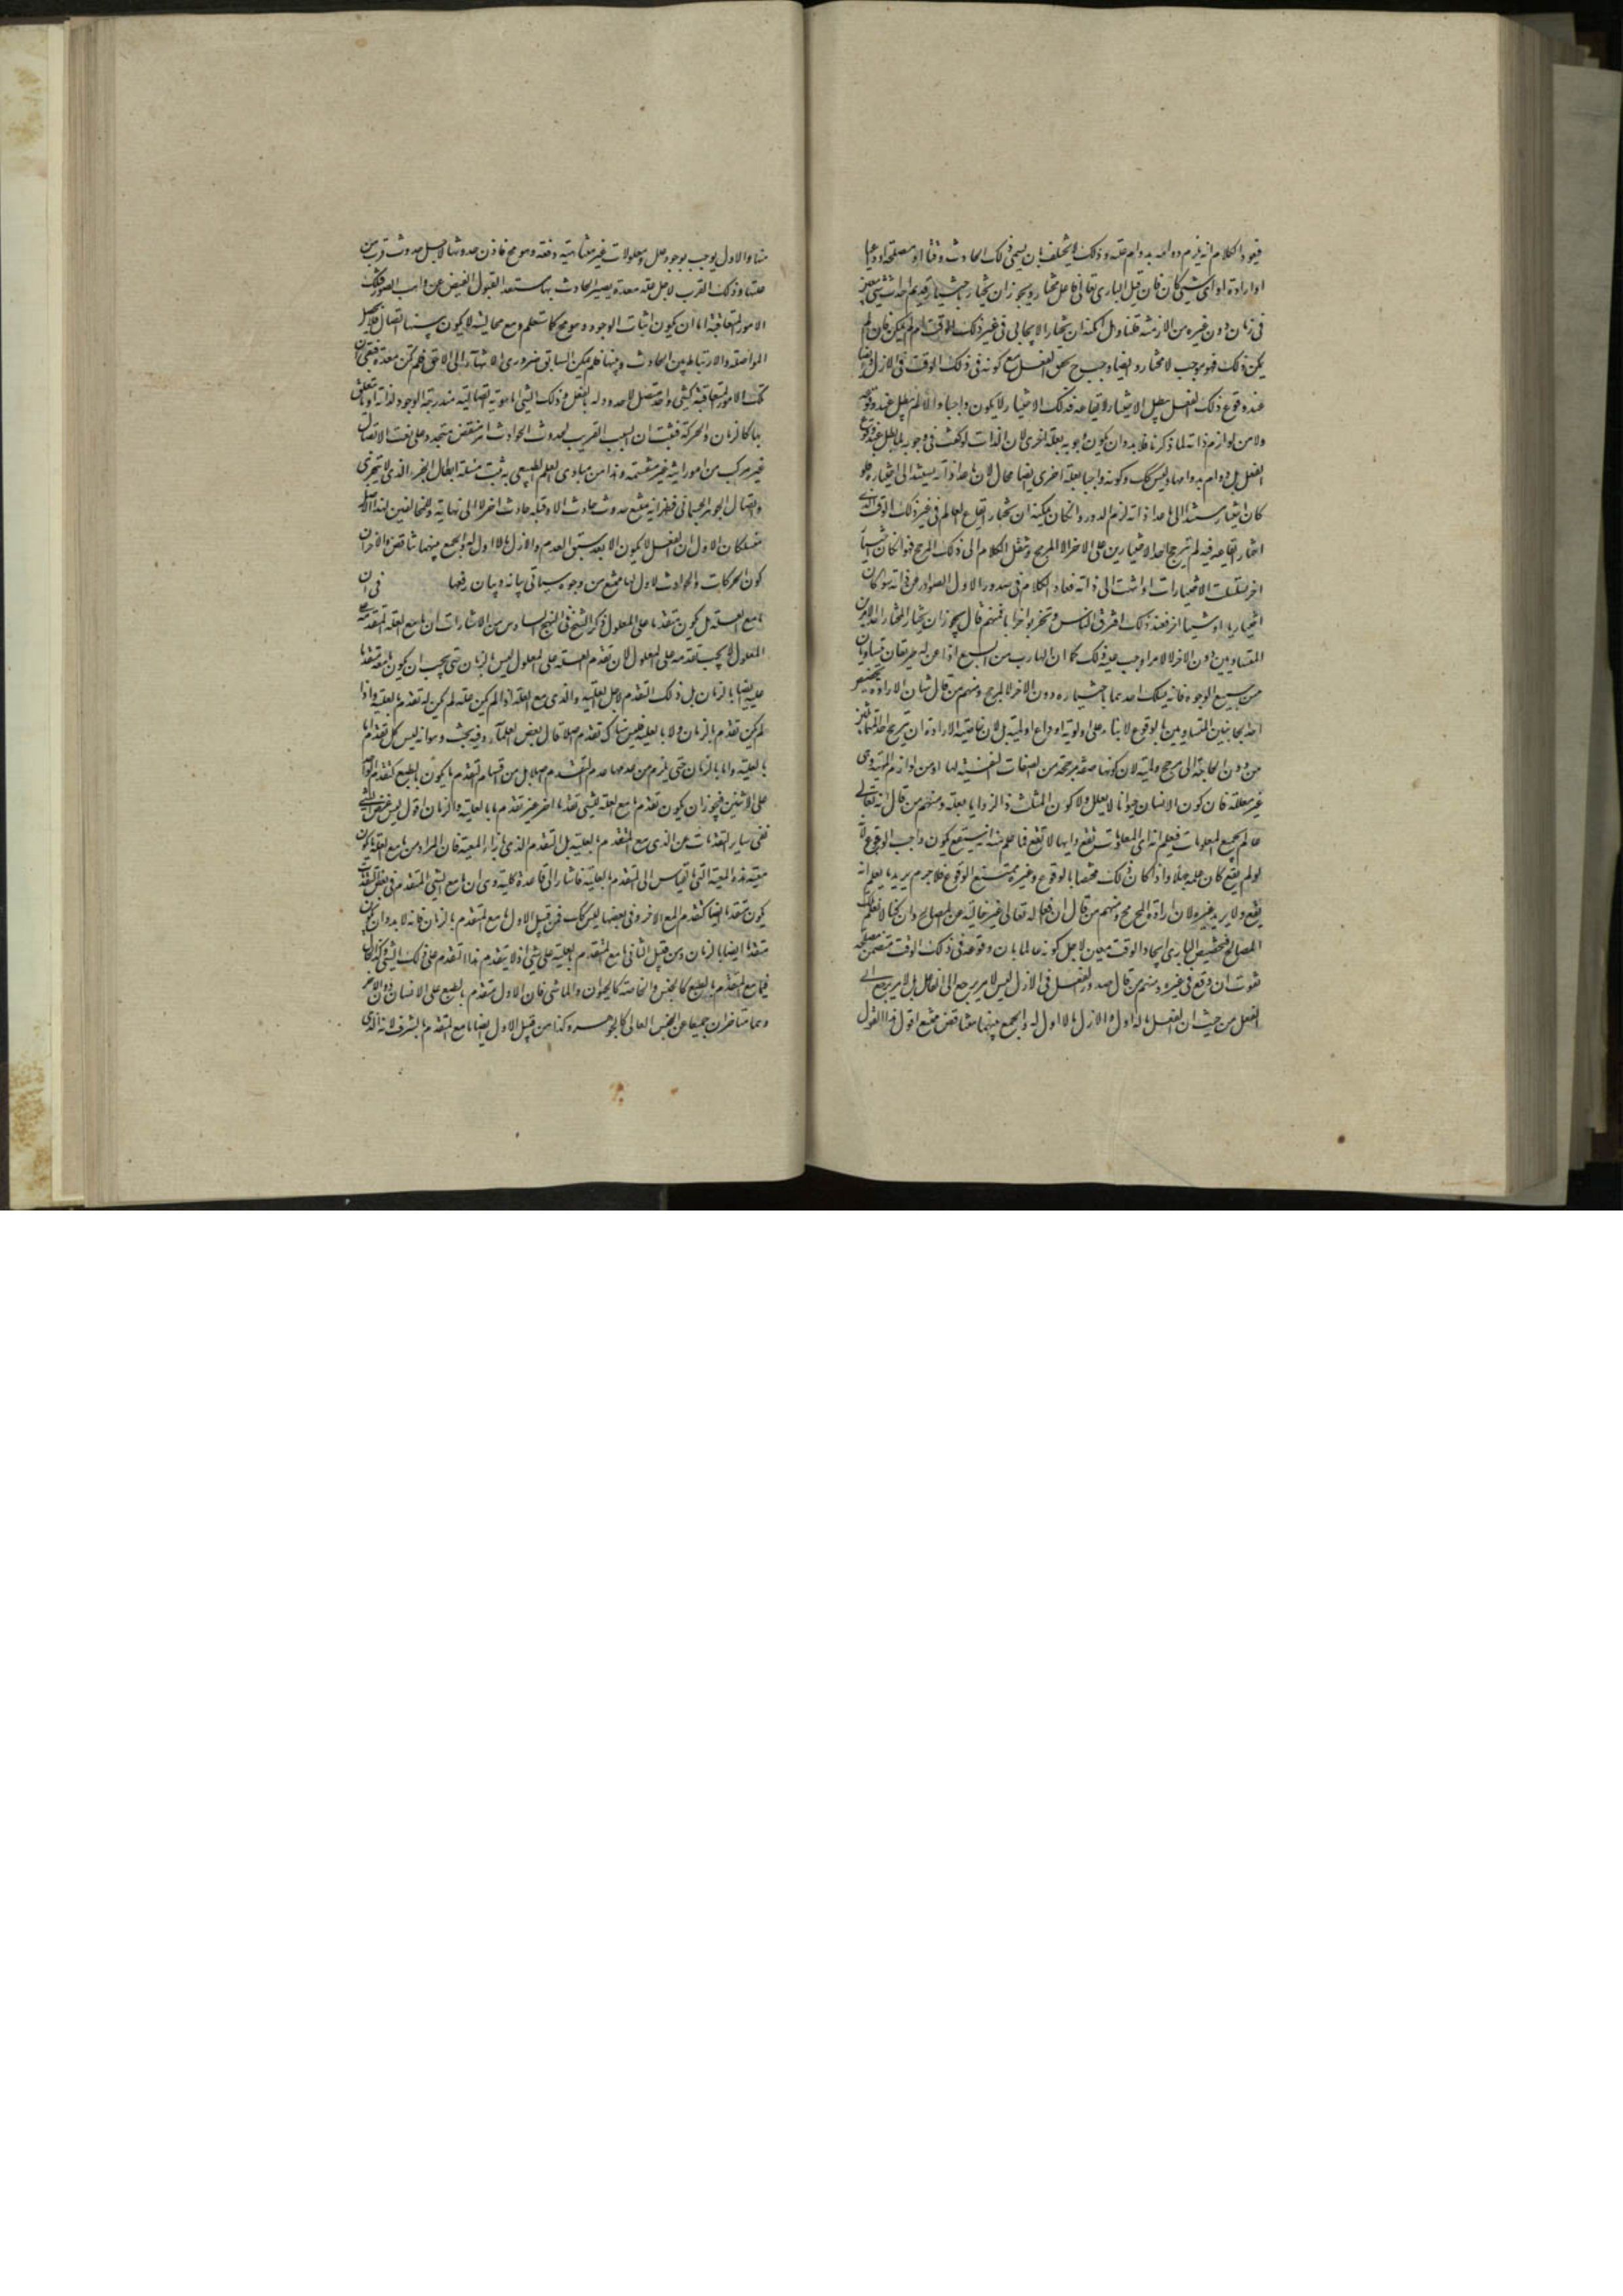 فيعود الكلام انه يلزم دوامه بدوام علته وذلك لا يختلف بان يسمى ذلك الحادث وقتا او مصلحة او داعيا
او ارادة او اى شىء كان فان قيل البارى تعالى فاعل مختار ويجوز ان يختار باختيار قديم احداث شىء معين
فى زمان دون غيره من الازمنة قلنا وهل امكنه ان يختار الايجاد فى غير ذلك الوقت ام لم يمكن فان لم
يمكن ذلك فهو موجب لا مختار وايضا وجب تحقق الفعل مع كونه فى ذلك الوقت فى الازل وايضا
عند وقوع ذلك الفعل يبطل الاختيار لايقاعه فذلك الاختيار لا يكون واجبا والا لم يبطل عند وقوعه
ولا من لوازم ذاته لما ذكرنا فلا بد وان يكون وجوبه بعلة اخرى لان الذات لو كفت فى وجوبه لما بطل عند وقوع
الفعل بل دوام بدوامها وليس كك وكونه واجبا بعلة اخرى ايضا محال لان ما عدا ذاته يستند الى اختياره فلو
كان اختياره مستندا الى ما عدا ذاته لزم الدور وان كان يمكنه ان يختار ايقاع العالم فى غير ذلك الوقت الذى
اختار ايقاعه فيه لم يترجح احد الاختيارين على الاخر الا لمرجح وننقل الكلام الى ذلك المرجح فهو ان كان اختيارا
اخر تسلسلت الاختيارات او انتهت الى ذاته فعاد الكلام فى صدور الاول الصوادر من ذاته سواء كان
اختياريا او شيئا اخر فعند ذلك افترق الناس وتحزبوا احزابا فمنهم قال يجوز ان يختار المختار احد الامرين
المتساويين دون الاخر لا لامر اوجب عليه ذلك كما ان الهارب من السبع اذا عن له طريقان متساويان
من جميع الوجوه فانه يسلك احدهما باختياره دون الاخر لا لمرجح ومنهم من قال شان الارادة تخصيص
احد الجانبين المتساويين بالوقوع لا بناء على اولوية او داع او لمية بل لان خاصية الارادة ان ترجح احد المتماثلين
من دون الحاجة الى مرجح ولمية لان كونها صفة مرجحة من الصفات النفسية لها او من لوازم المهية وهى
غير معللة فان كون الانسان حيوانا لا يعلل ولا كون المثلث ذا الزوايا بعلة ومنهم من قال انه تعالى
عالم بجميع المعلومات فيعلم انه اى المعلومات تقع وايها لا تقع فما علم منه انه سيقع يكون واجب الوقوع لانه
لو لم يقع كان علمه جهلا واذا كان ذلك مختصا بالوقوع وغيره ممتنع الوقوع فلا جرم يريد ما يعلم انه
يقع ولا يريد غيره لان ارادة المحال محال ومنهم من قال ان افعاله تعالى غير خالية عن المصالح وان كنا لا نعلم تلك
المصالح فتخصيص البارى ايجاد الوقت معين لاجل كونه عالما بان وقوعه فى ذلك الوقت متضمن مصلحة
تفوت ان وقع فى غيره ومنهم من قال عدم صدور الفعل فى الازل ليس لامر يرجع الى الفاعل بل لامر يرجع الى
الفعل من حيث ان الفعل ما له اول والازل ما لا اول له والجمع بينهما متناقض ممتنع اقول هذا القول
منا والاول يوجب وجود علل ومعلولات غير متناهية دفعة وهو مح فاذن حدوثها لاجل حدوث قرب من
علتها وذلك القرب لاجل علة معدة يصير الحادث بها مستعدا لقبول الفيض عن واهب الصور فتلك
الامور المتعاقبة اما ان يكون اثبات الوجود وهو مح كما ستعلم ومع محاليته لا يكون بينها اتصال فلا يحصل
المواصلة والارتباط بين الحادث وبينها فلم يكن السابق ضرورى الانتهاء الى اللاحق فلم تكن معدة فبقى ان
تلك الامور المتعاقبة كشىء واحد متصل لا حدود له بالفعل وذلك الشىء اما هوية اتصالية متدرجة الوجود لذاته او ما يتعلق
بها كالزمان والحركة فثبت ان السبب القريب لحدوث الحوادث امر منقض متجدد على نعت الاتصال
غير مركب من امور انية غير منقسمة وهذا من مبادى العلم الطبيعى به ثبت مسئلة ابطال الجزء الذى لا يتجزى
واتصال الجوهر الجسمانى فظهر انه ممتنع حدوث حادث الا وقبله حادث اخر لا الى نهاية وللمخالفين لهذا الاصل
متمسكان الاول ان الفعل لا يكون الا بعد سبق العدم والازل ما لا اول له والجمع بينهما متناقض والاخر ان
كون الحركات والحوادث لا اول لها ممتنع من وجوه سياتى بيانه وبيان دفعها فى ان
ما مع العلة هل يكون متقدما على المعلول ذكر الشيخ فى النهج السادس من الاشارات ان ما مع العلة المتقدمة على
المعلول لا يجب تقدمه على المعلول لان تقدم العلة على المعلول ليس بالزمان حتى يجب ان يكون ما معه متقدما
عليه ايضا بالزمان بل ذلك التقدم لاجل العلية والذى مع العلة اذا لم يكن علة لم يكن له تقدم بالعلية واذا
لم يكن تقدم بالزمان ولا بالعلية فليس هناك تقدم اصلا قال بعض العلماء وفيه بحث وهو انه ليس كل تقدم اما
بالعلية واما بالزمان حتى يلزم من عدمهما عدم التقدم اصلا بل من اقسام التقدم ما يكون بالطبع كتقدم الواحد
على الاثنين فيجوز ان يكون تقدم ما مع العلة لشىء تقدما اخر غير تقدم ما بالعلية والزمان اقول ليس غرض الشيخ
نفى ساير التقدمات عن الذى مع المتقدم بالعلية بل التقدم الذى بازاء المعية فان المراد من ما مع العلة ما يكون
معيته هذه المعية التى بالقياس الى المتقدم بالعلية فاشار الى قاعدة كلية وهى ان ما مع الشىء المتقدم فى بعض التقدمات
يكون متقدما ايضا كتقدم المع الاخر وفى بعضها ليس كك فمن قبيل الاول ما مع المتقدم بالزمان فانه لا بد وان يكون
متقدما ايضا بالزمان ومن قبيل الثانى ما مع المتقدم بالعلية على شىء اذ لا يتقدم هذا التقدم على ذلك الشىء وكذا الحال
فيما مع المتقدم بالطبع كالجنس والخاصة كالحيوان والماشى فان الاول متقدم بالطبع على الانسان دون الاخر
وهما متاخران جميعا عن الجنس العالى كالجوهر وكذا من قبيل الاول ايضا ما مع المتقدم بالشرف لانه الذى